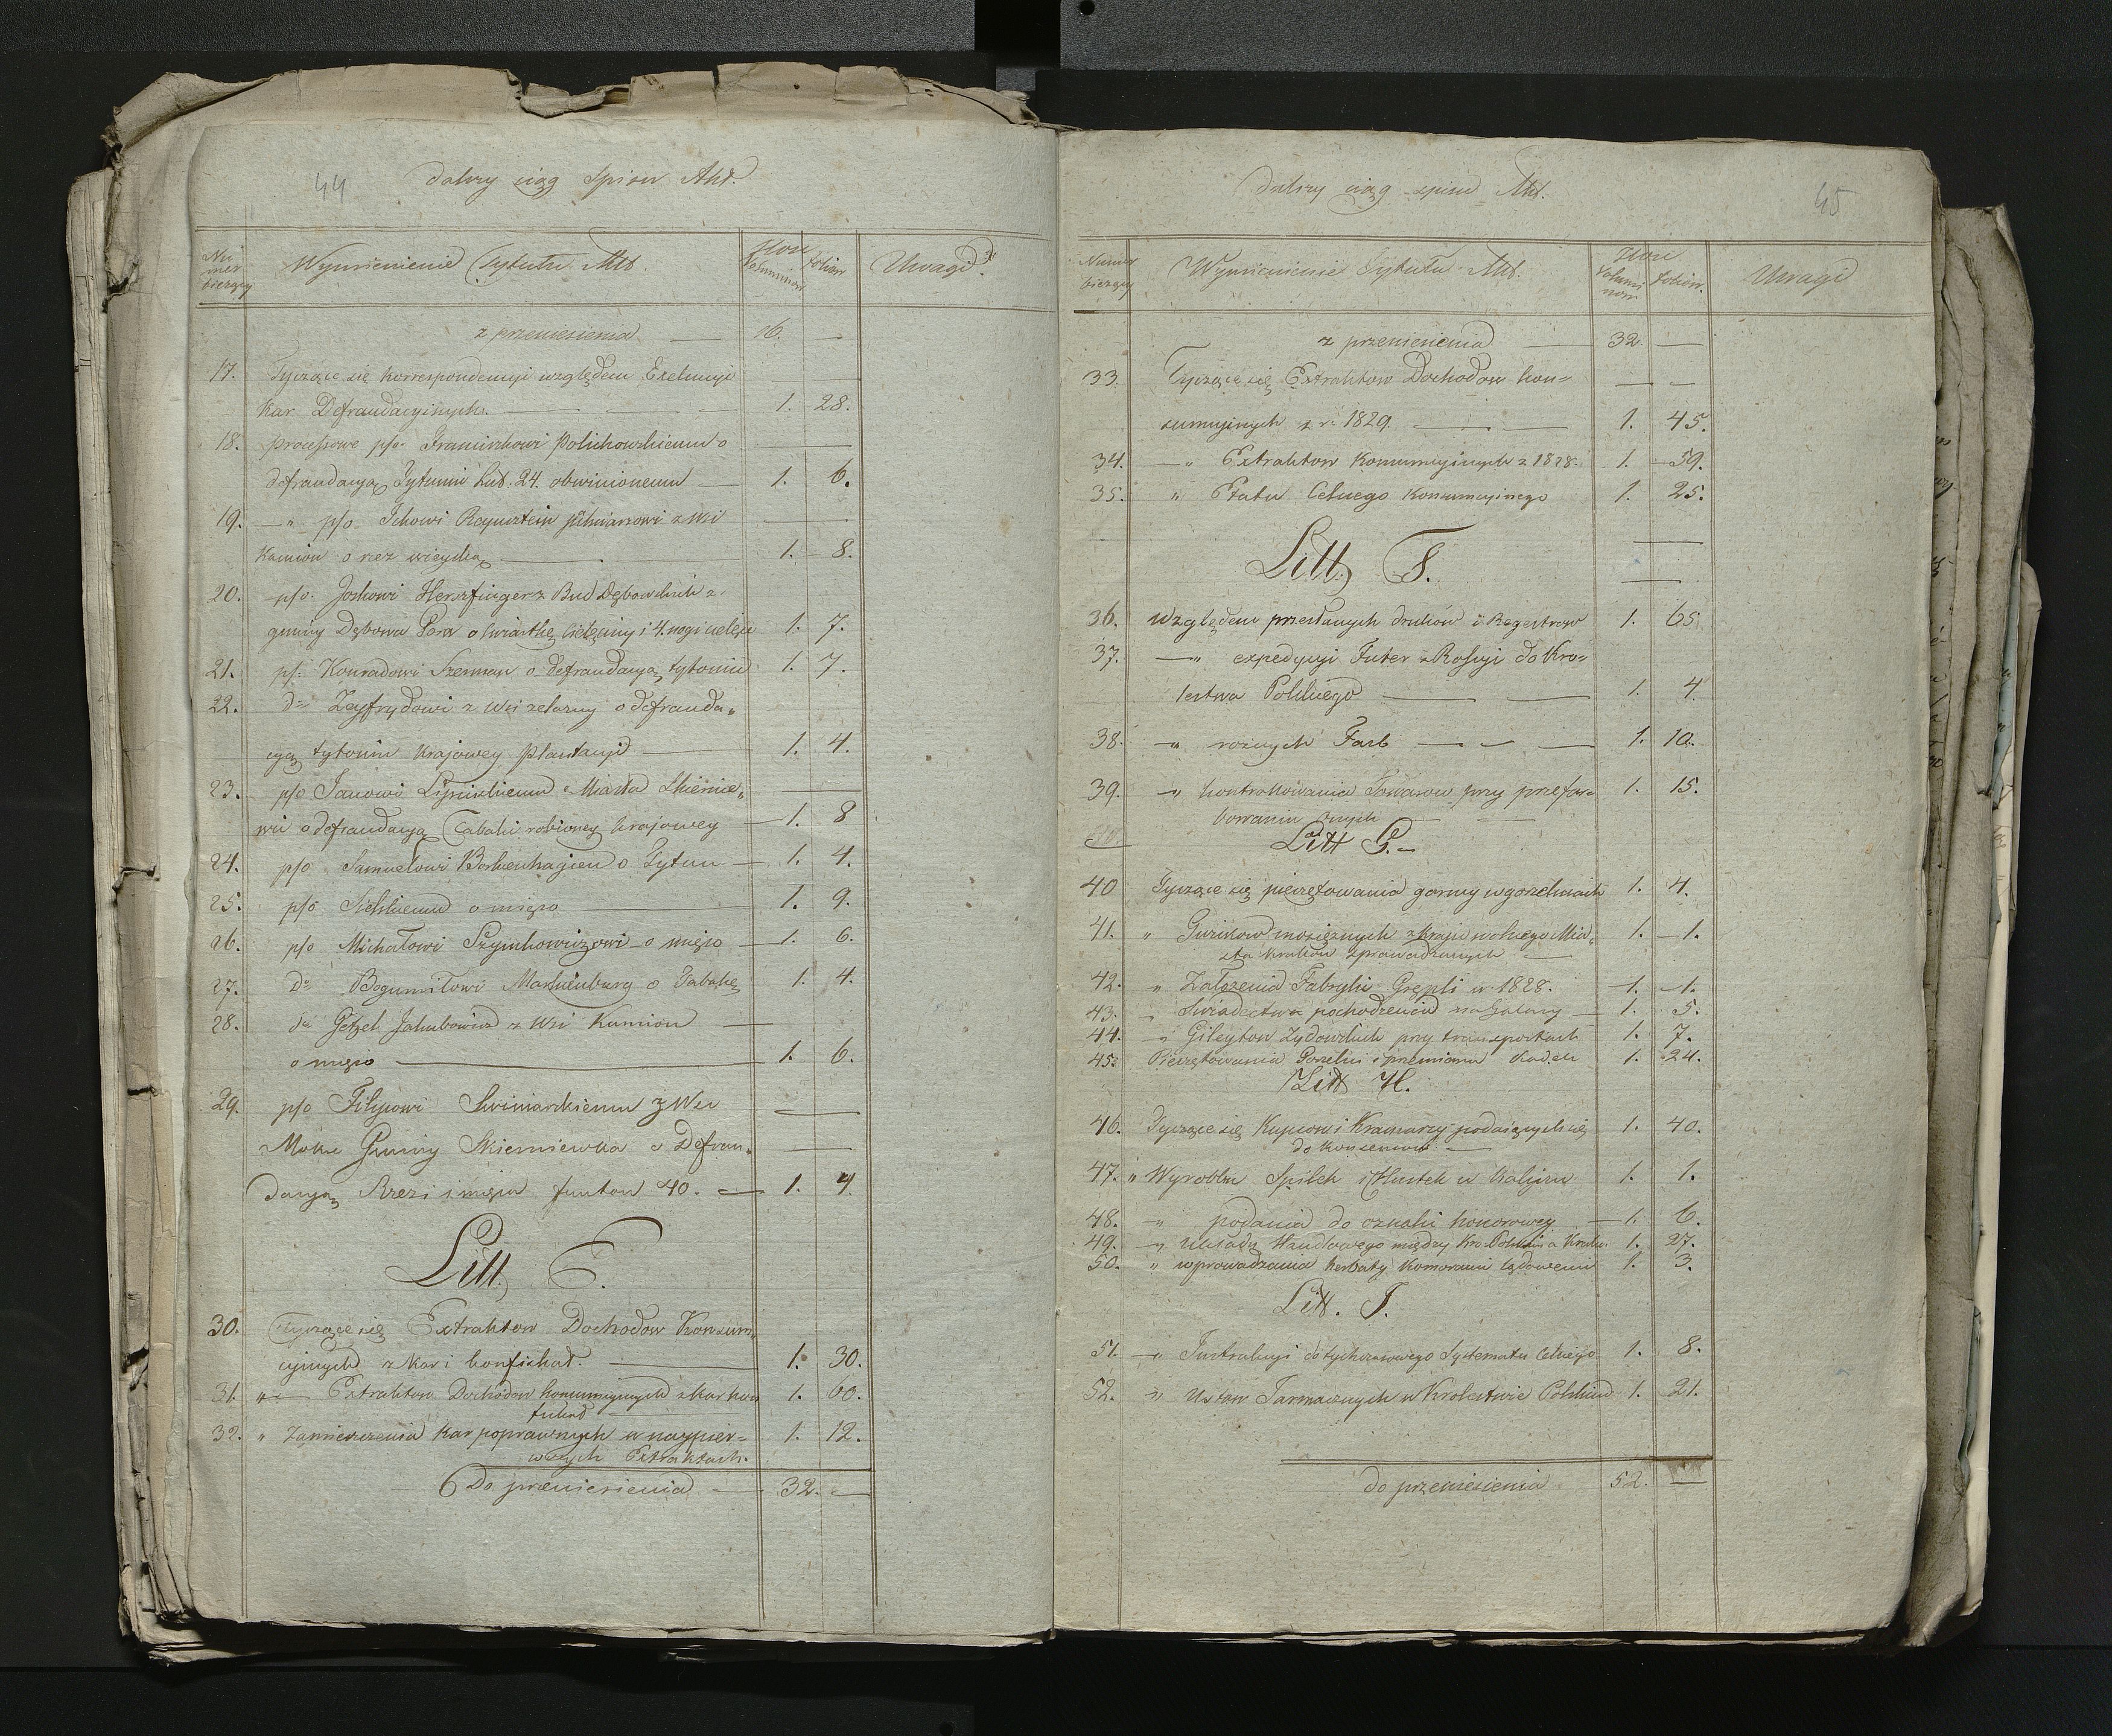 44 Dalszy ciąg Spisu Akt.
Nu mer bieżący Wymienienie Tytułu Akt. Ilość Voluminow foliow Uwagi
z przeniesienia — 16. —
17. Tyczące się korrespondencyi względem Exekucyi
Kar Defraudacyinych. — 1. 28.
18. processowe p/o Franciszkowi Polichowskiemu o
defraudacyą Tytuniu Lut. 24. obwinionemu — 1. 6.
19. — " p/o Ickowi Raynsztein z Wsi
Kamion o rzez — 1. 8.
20. p/o Joskowi Herszfinger z Bud Dębowskich z
gminy Dębowa Gora o ćwiartkę cielęciny i 4. nogi cielęce 1. 7.
21. p/o Konradowi Szerman o defraudacyą tytoniu 1. 7.
22. do Zeyfrydowi z Wsi Zelazny o defrauda„
cyą tytoniu krajowey Plantacyi — 1. 4.
23. p/o Janowi Lipinskiemu z Miasta Skiernie„
wic o defraudacyą Tabaki robioney krajowey — 1. 8
24. p/o Samuelowi Borkenhagien o Tytun — 1. 4.
25. p/o Sielskiemu o mięso — 1. 9.
26. p/o Michałowi Szymkowiczowi o mięso — 1. 6.
27. do Bogumiłowi Markienburg o Tabakę 1. 4.
28. do Getzel Jakubowicz z Wsi Kamion —
o mięso — 1. 6.
29. p/o Filipowi Swiniarskiemu z Wsi
Mokra Gminy Skierniewka o Defrau„
dacyą Rzezi i mięsa funtow 40. — 1. 4.
Litt. E.
30. Tyczące się Extraktow Dochodow Konsum„
cyinych z Kar i konfiskat. — 1. 30.
31. " — Extraktow Dochodow konsumcyinych z kar kon 1. 60.
fiskat
32. " Zamieszczenia Kar poprawnych w naypier=
wszych Extraktach. 1. 12.
Do przeniesienia — 32. —
Dalszy ciąg spisu Akt. 45
Numer bieżący Wymienienie Tytułu Akt. Ilość Volumi now foliow. Uwagi
z przeniesienia — 32. —
33. Tyczące się Extraktow Dochodow kon=
sumcyinych z r. 1829. — 1. 45.
34. — " Extraktow Konsumcyinych z 1828. 1. 59.
35. " Etatu Celnego Konsumcyinego 1. 25.
Litt. F.
36. Względem przesłanych drukow i Regestrow 1. 65.
37. — " expedycyi Futer z Rossyi do Kro=
lestwa Polskiego — 1. 4.
38. — " rożnych Farb — 1. 10.
39. — " kontrolowania Towarow przy przefar=
bowaniu onych — 1. 15.
Litt G. —
40 Tyczące się pieczętowania garncy w gorzelniach 1. 4.
41. " Guzikow mosiężnych z kraju wolnego Mia„
sta Krakow sprowadzanych — 1. 1.
42. " Założenia Fabryki Grępli w 1828. 1. 1.
43. " Swiadectwa pochodzenia na Galary — 1. 5.
44. " Gileytow Żydowskich przy transportach 1. 7.
45. Pieczętowania Gorzelni i przemiana Kadek 1. 24.
Litt H.
46. Tyczące się Kupcow i Kramarzy podaiących się 1. 40.
do konsensow —
47. " Wyrobku Szpilek i Hustek w Kaliszu 1. 1.
48. — " podania do oznaki honorowey — 1. 6.
49. — " układu Handlowego między Kro. Polskim a Krak. 1. 27.
50. " wprowadzania herbaty Komorami lądowemi 1. 3.
Litt. J.
51. — " Instrukcyi dotychczasowego Systematu Celnego 1. 8.
52. " Ustaw Jarmacznych w Krolestwie Polskim 1. 21.
do przeniesienia 52. —